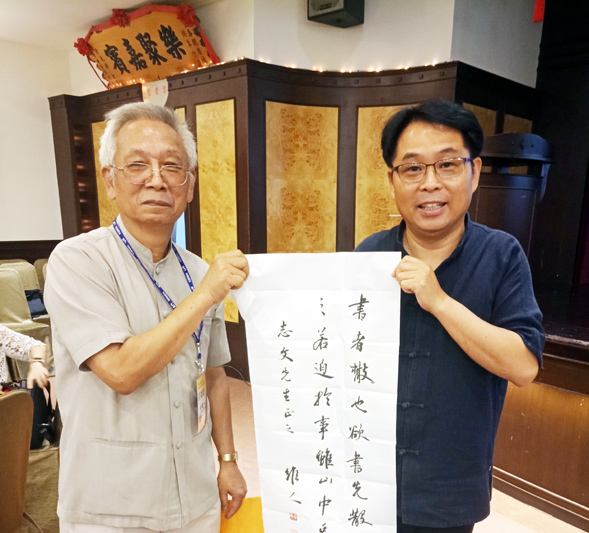 樂聚嘉賓
書者散也欲書先散
之若迫於事雖山中
志文先生正之
維人